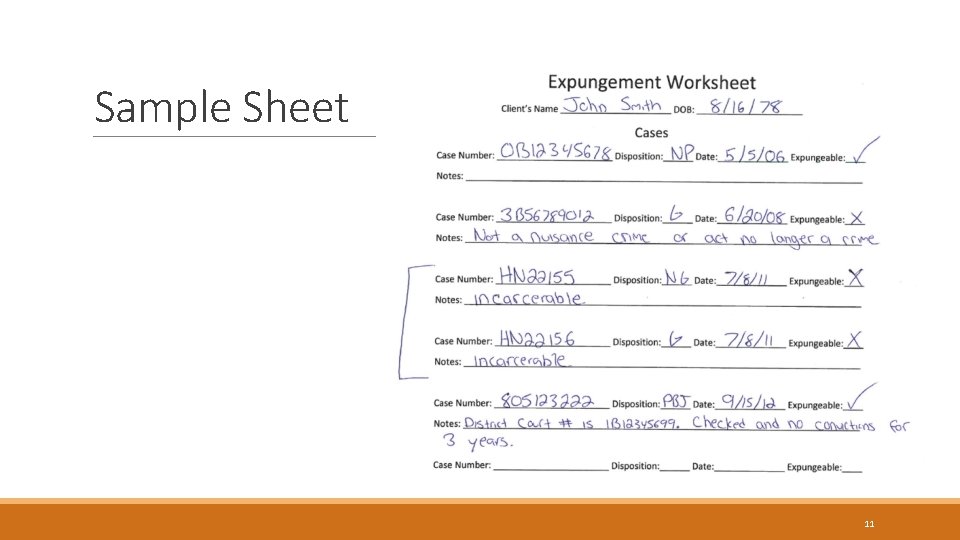 Sample Sheet
Expungement Worksheet
Client's Name John Smith DOB: 8/16/78
Cases
Case Number: 0B12345678 Disposition: NP Date: 5/5/06 Expungeable: ✓
Notes:
Case Number: 3B56789012 Disposition: G Date: 6/20/08 Expungeable: X
Notes: Not a nuisance crime or act no longer a crime
Case Number: HN22155 Disposition: NG Date: 7/8/11 Expungeable: X
Notes: incarcerable
Case Number: HN22156 Disposition: G Date: 7/8/11 Expungeable: X
Notes: incarcerable
Case Number: 805123222 Disposition: PBJ Date: 9/15/12 Expungeable: ✓
Notes: District Court # is 1B12345699. Checked and no convictions for
3 years.
Case Number: Disposition: Date: Expungeable:
11